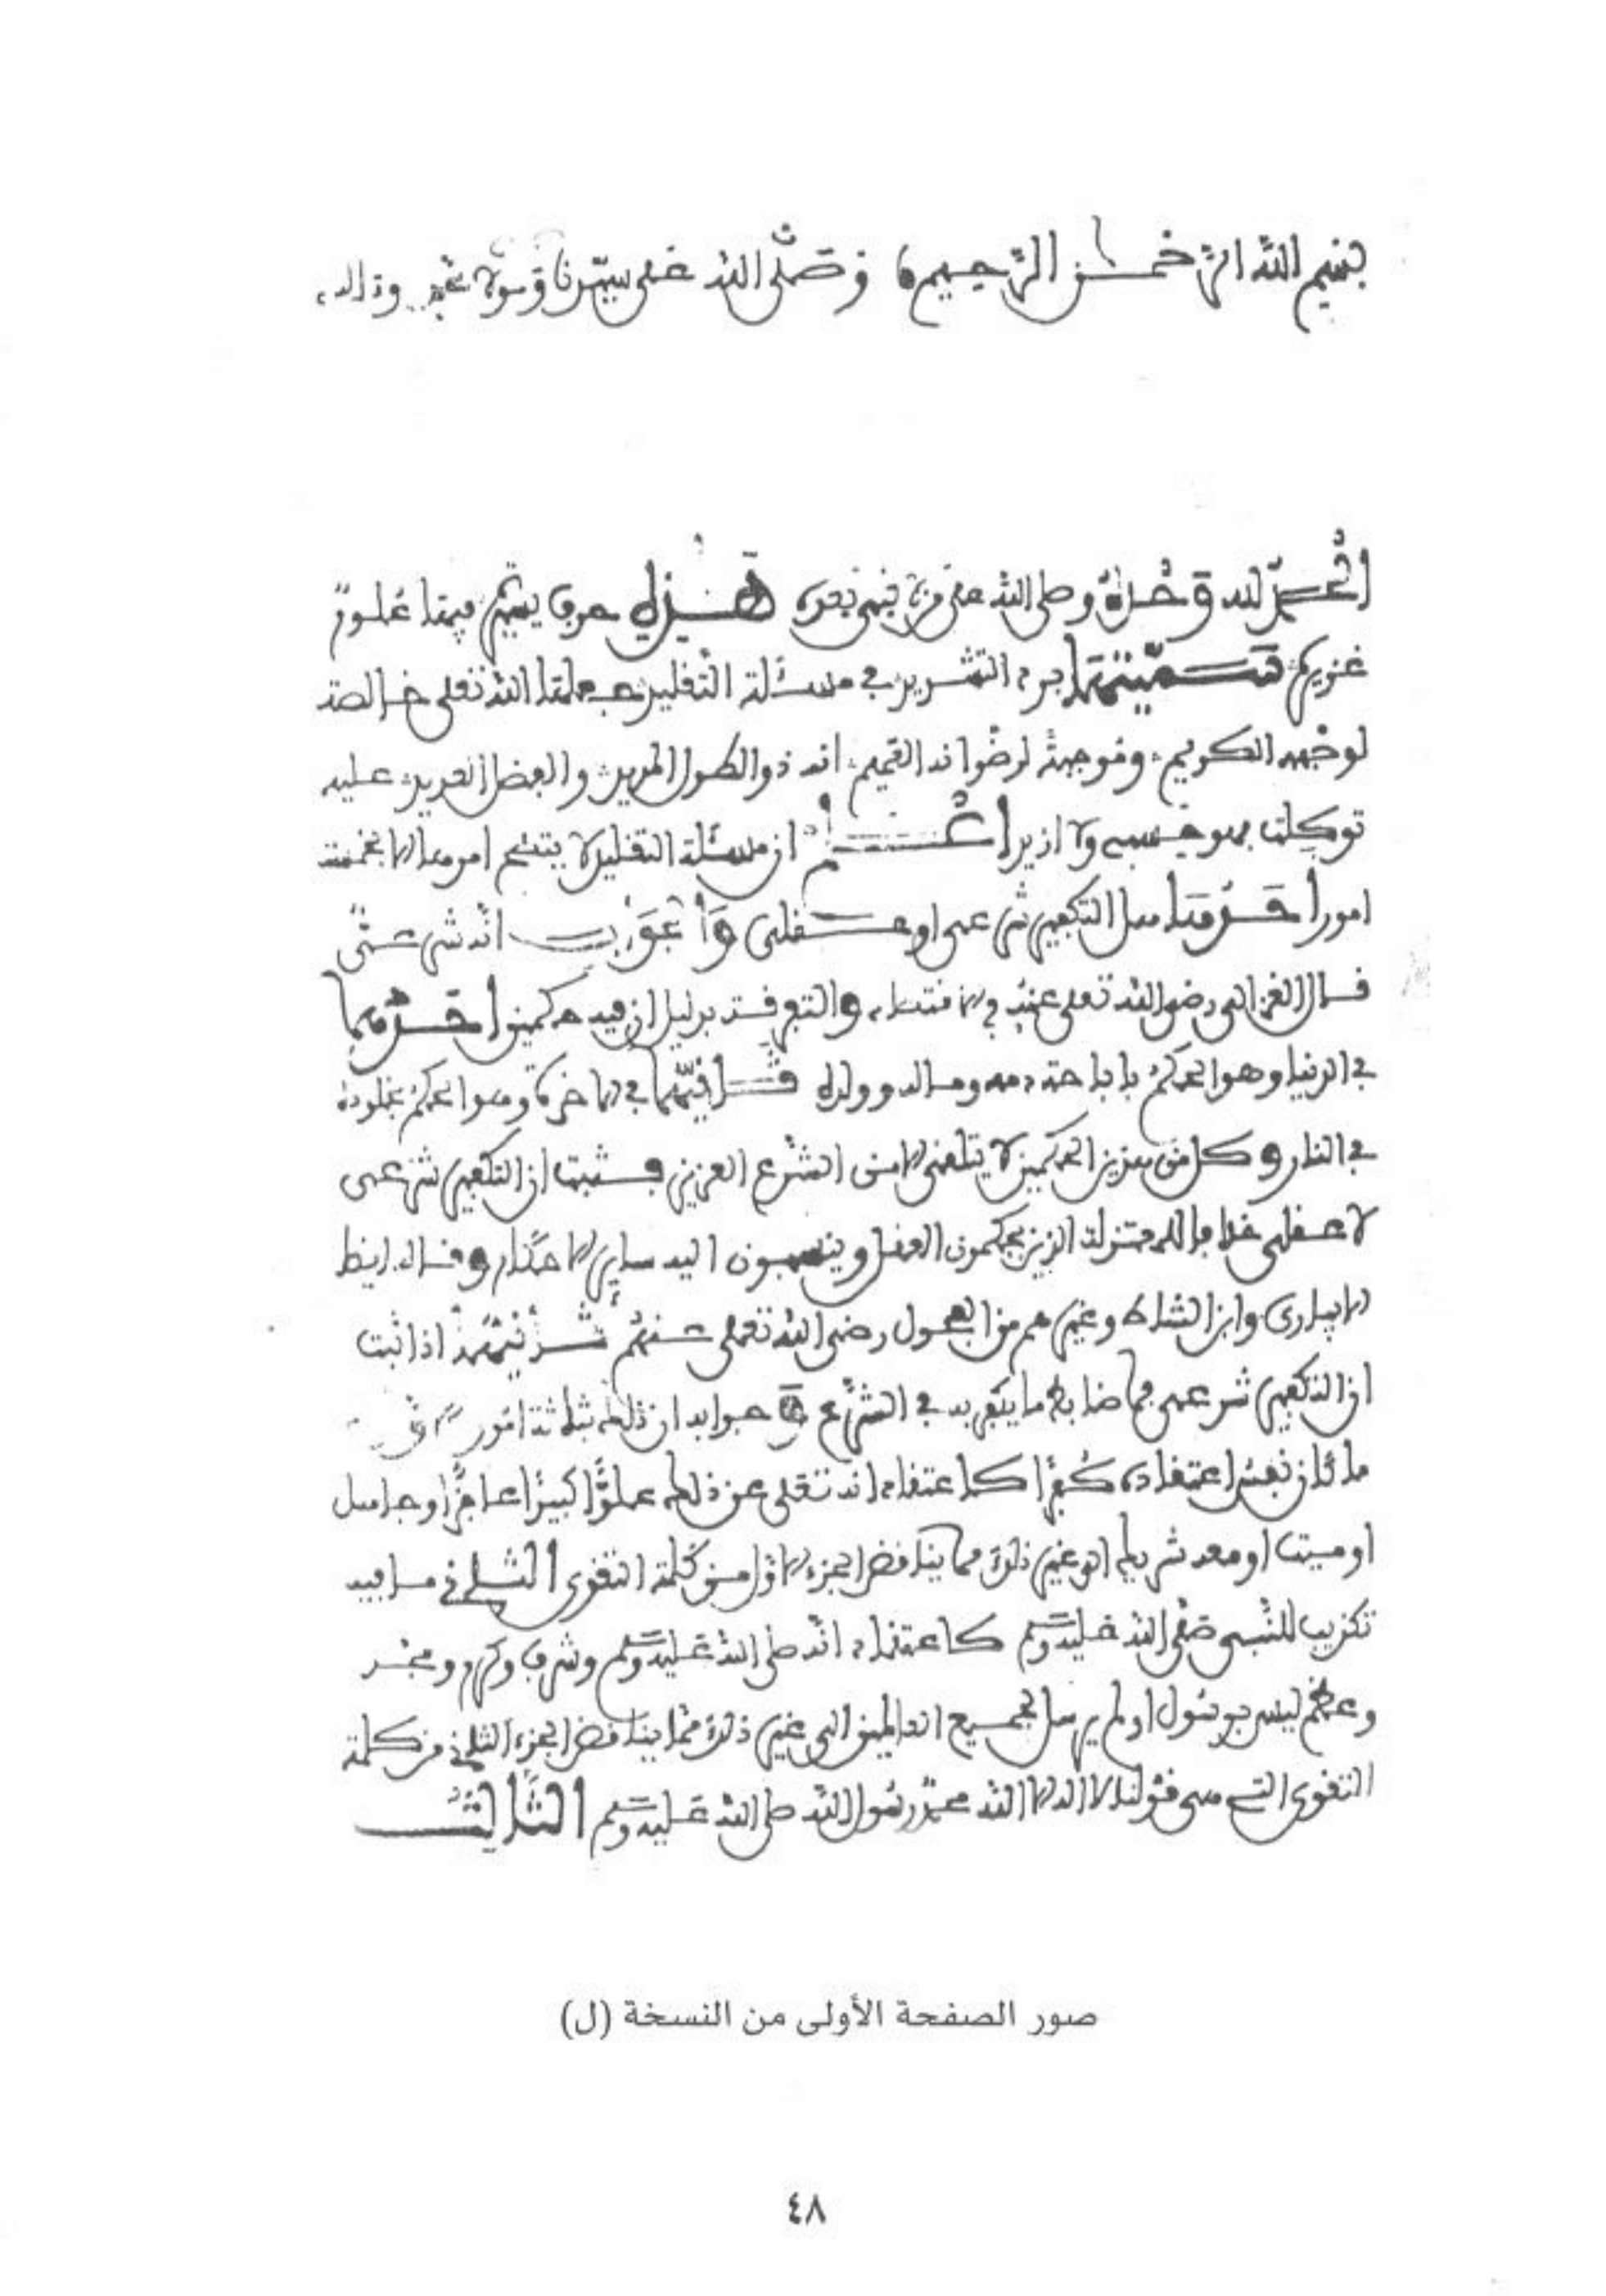 بسم الله الرحمن الرحيم وصلى الله على سيدنا ومولانا محمد وءاله
الحمد لله وحده وصلى الله على من لا نبي بعده هذه حروف يسيرة فيها علوم
غزيرة سميتها التشديد في مسئلة التقليد جعلها الله تعلى خالصة
لوجهه الكريم وموجبة لرضوانه العميم انه ذو الطول المديد والفضل العديد عليه
توكلت وهو حسبي ولا ازيد اعلم ان مسئلة التقليد لا يتضح امرها الا بخمسة
امور احدها هل التكفير شرعي او عقلي والجواب انه شرعي
قال الغزالي رضي الله تعلى عنه في الاقتصاد والتفرقة بدليل ان فيه حكمين احدهما
في الدنيا وهو الحكم باباحة دمه وماله وولده ثانيهما في الاخرة وهو الحكم بخلوده
في النار وكل من هذين الحكمين لا يتلقى الا من الشرع العزيز فثبت ان التكفير شرعي
لا عقلي خلافا للمعتزلة الذين يحكمون العقل وينسبون اليه ساير الاحكام وقاله ايضا
الابياري وابن الشاط وغيرهم من الفحول رضي الله تعلى عنهم ثانيها اذا ثبت
ان التكفير شرعي فما ضابط ما يكفر به في الشرع جوابه ان ذلك بثلاثة امور الاول
ما كان نفس اعتقاده كفرا كاعتقاده انه تعلى عن ذلك علوا كبيرا عاجز او جاهل
او ميت او معه شريك الى غير ذلك مما يناقض الجزء الاول من كلمة التقوى الثاني ما فيه
تكذيب للنبي صلى الله عليه وسلم كاعتقاده انه صلى الله عليه وسلم وشرف وكرم ومجد
وعظم ليس برسول او لم يرسل لجميع العالمين الى غير ذلك مما يناقض الجزء الثاني من كلمة
التقوى التي هي قولنا لا اله الا الله محمد رسول الله صلى الله عليه وسلم الثالث
صور الصفحة الأولى من النسخة (ل)
٤٨